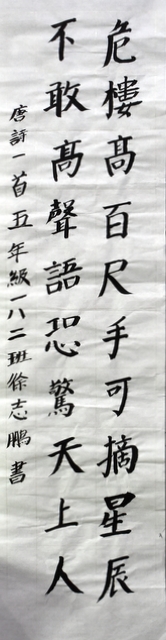 危樓髙百尺手可摘星辰
不敢髙聲語恐驚天上人
唐詩一首五年級一八二班徐志鵬書